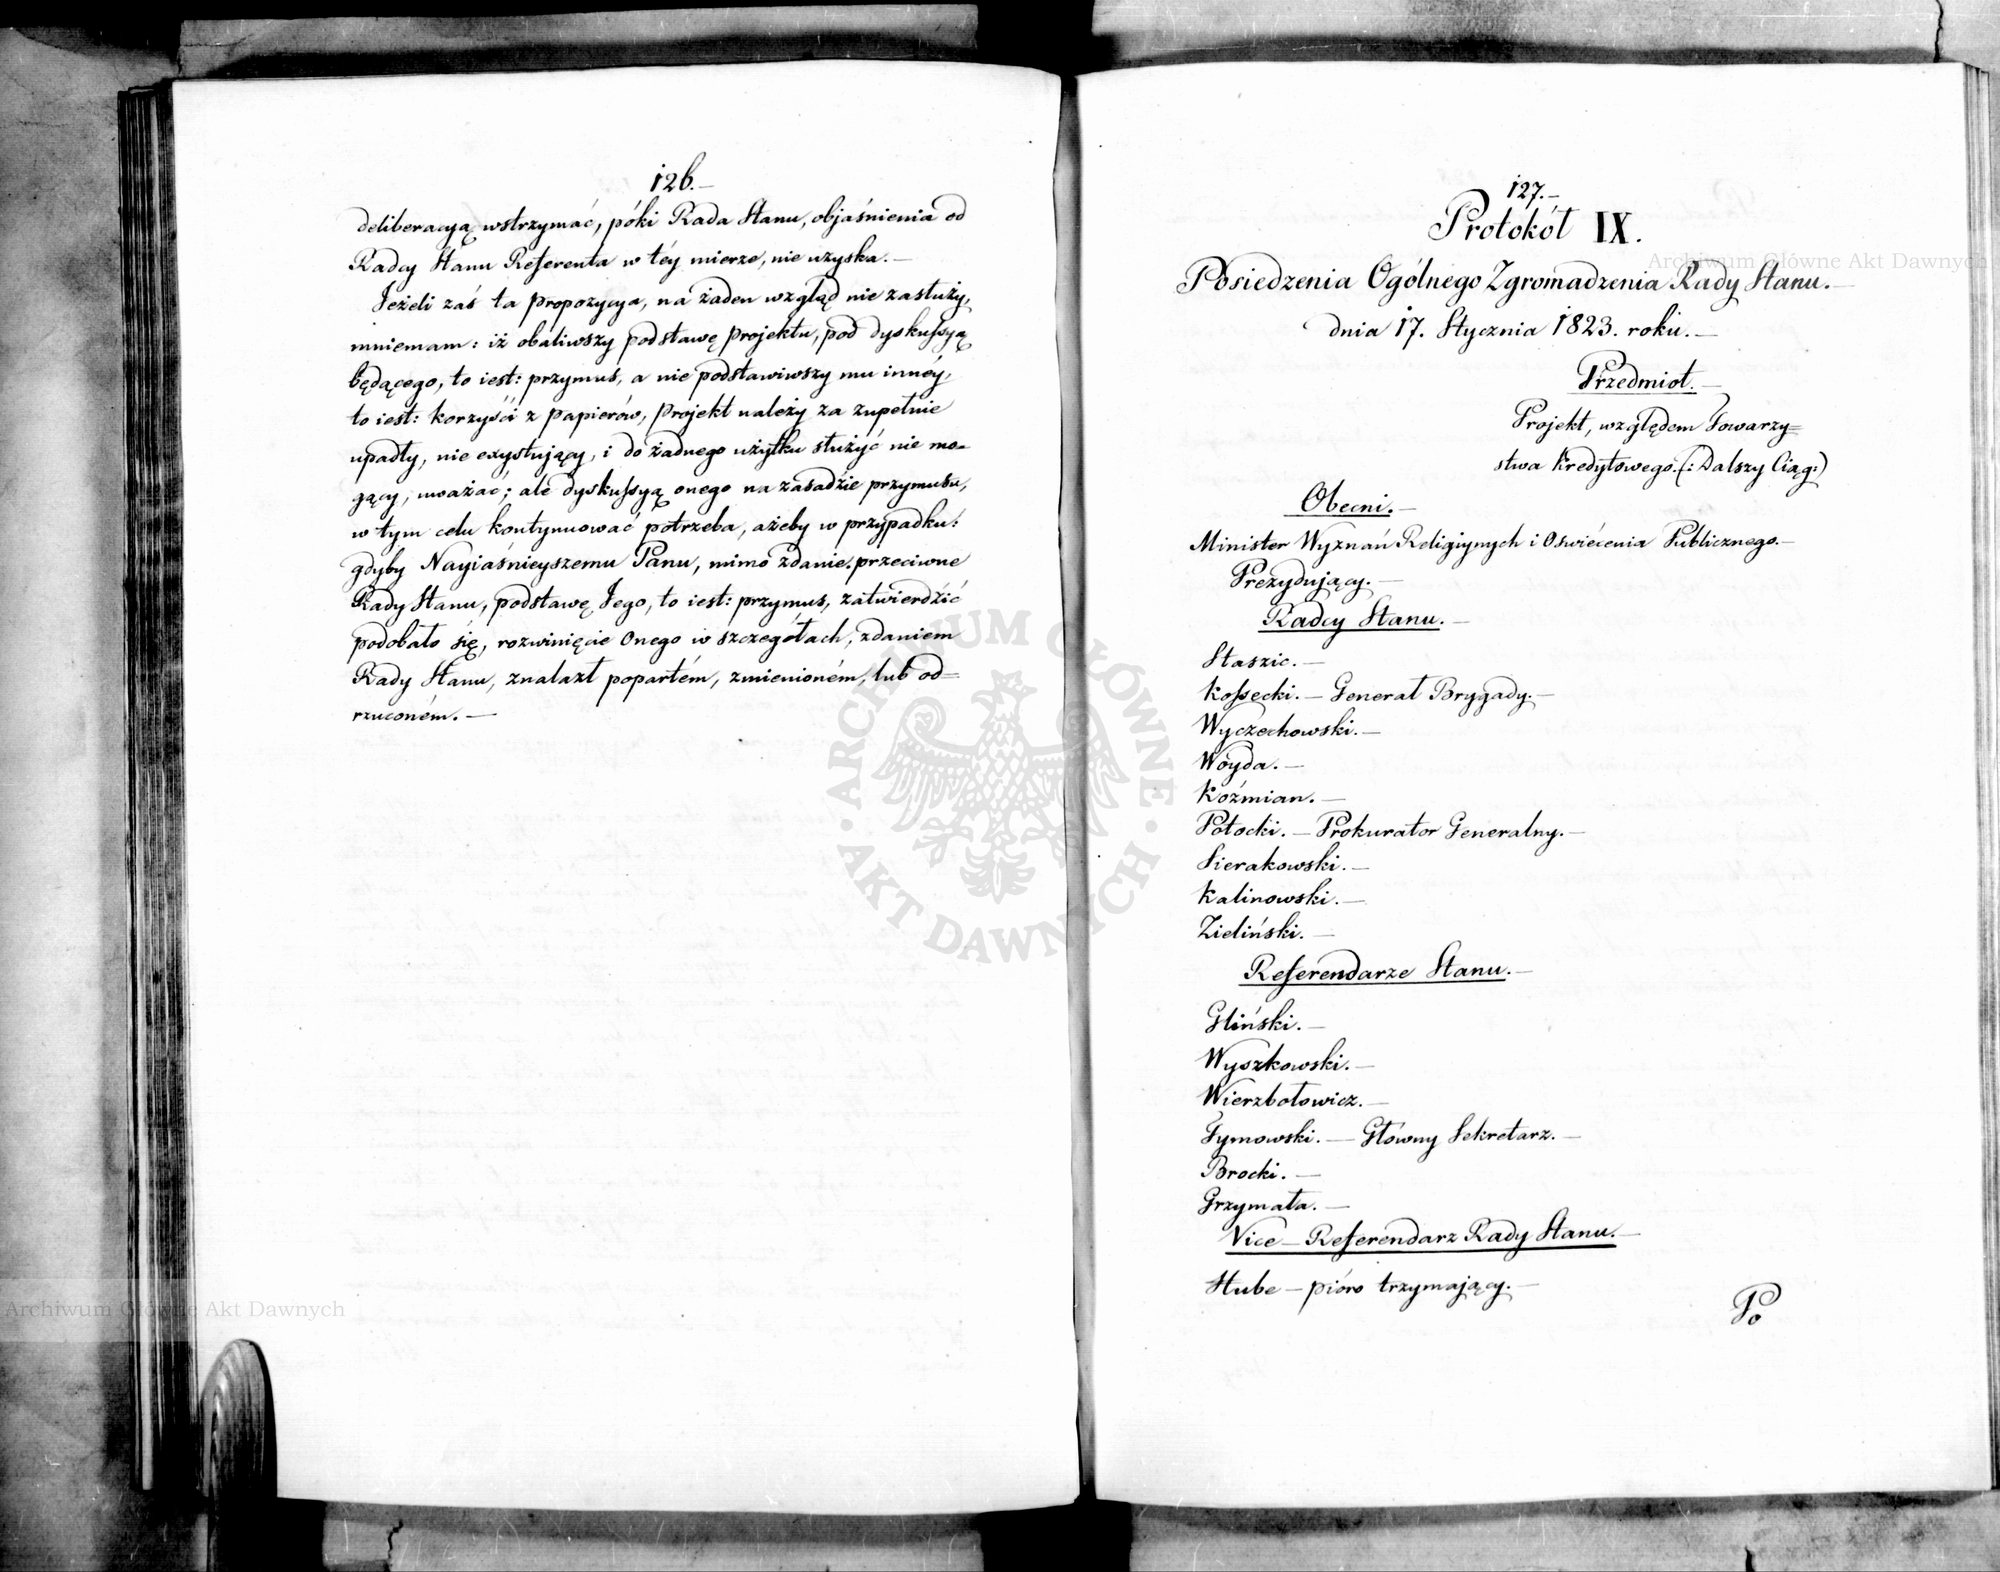 126.—
deliberacyą wstrzymać, póki Rada Stanu, objaśnienia od
Radcy Stanu Referenta w téy mierze, nie uzyska.—
Jeżeli zaś ta propozycya, na żaden wzgląd nie zasłuży,
mniemam: iż obaliwszy podstawę projektu, pod dyskussyą
będącego, to iest: przymus, a nie podstawiwszy mu innéy,
to iest: korzyści z papierów, projekt należy za zupełnie
upadły, nie exystujący, i do żadnego użytku służyć nie mo-
gący, uważać; ale dyskussyą onego na zasadzie przymusu,
w tym celu kontynuować potrzeba, ażeby w przypadku:
gdyby Nayiaśnieyszemu Panu, mimo zdanie przeciwne
Rady Stanu, podstawę Jego, to iest: przymus, zatwierdzić
podobało się, rozwinięcie onego w szczegółach, zdaniem
Rady Stanu, znalazł popartém, zmienioném, lub od=
rzuconém.—
127.—
Protokół IX.
Posiedzenia Ogólnego Zgromadzenia Rady Stanu.—
dnia 17. Stycznia 1823. roku.—
Przedmiot.—
Projekt, względem Towarzy=
stwa Kredytowego. (: Dalszy Ciąg:)
Obecni.—
Minister Wyznań Religiynych i Oswiécenia Publicznego.—
Prezydujący.—
Radcy Stanu.—
Staszic.—
Kossecki.— Generał Brygady.—
Wyczechowski.—
Woyda.—
Koźmian.—
Potocki.— Prokurator Generalny.—
Sierakowski.—
Kalinowski.—
Zieliński.—
Referendarze Stanu.—
Gliński.—
Wyszkowski.—
Wierzbołowicz.—
Tymowski.— Główny Sekretarz.—
Brocki.—
Grzymała.—
Vice-Referendarz Rady Stanu.—
Hube — pióro trzymający.—
Po
Archiwum Główne Akt Dawnych
Archiwum Główne Akt Dawnych
ARCHIWUM GŁÓWNE AKT DAWNYCH